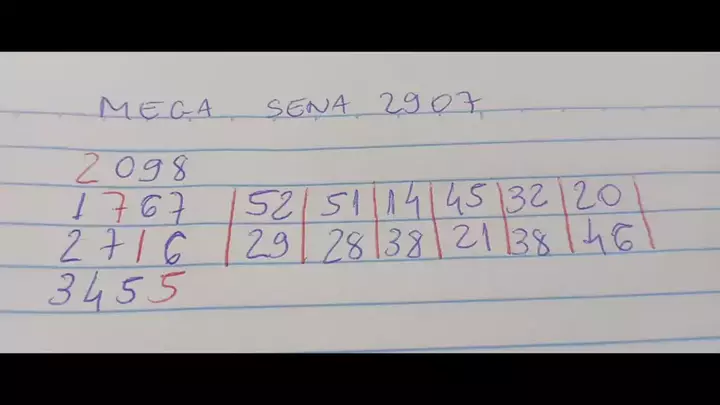 MEGA SENA 2907
2098
1767 | 52 | 51 | 14 | 45 | 32 | 20 |
2716 | 29 | 28 | 38 | 21 | 38 | 46 |
3455